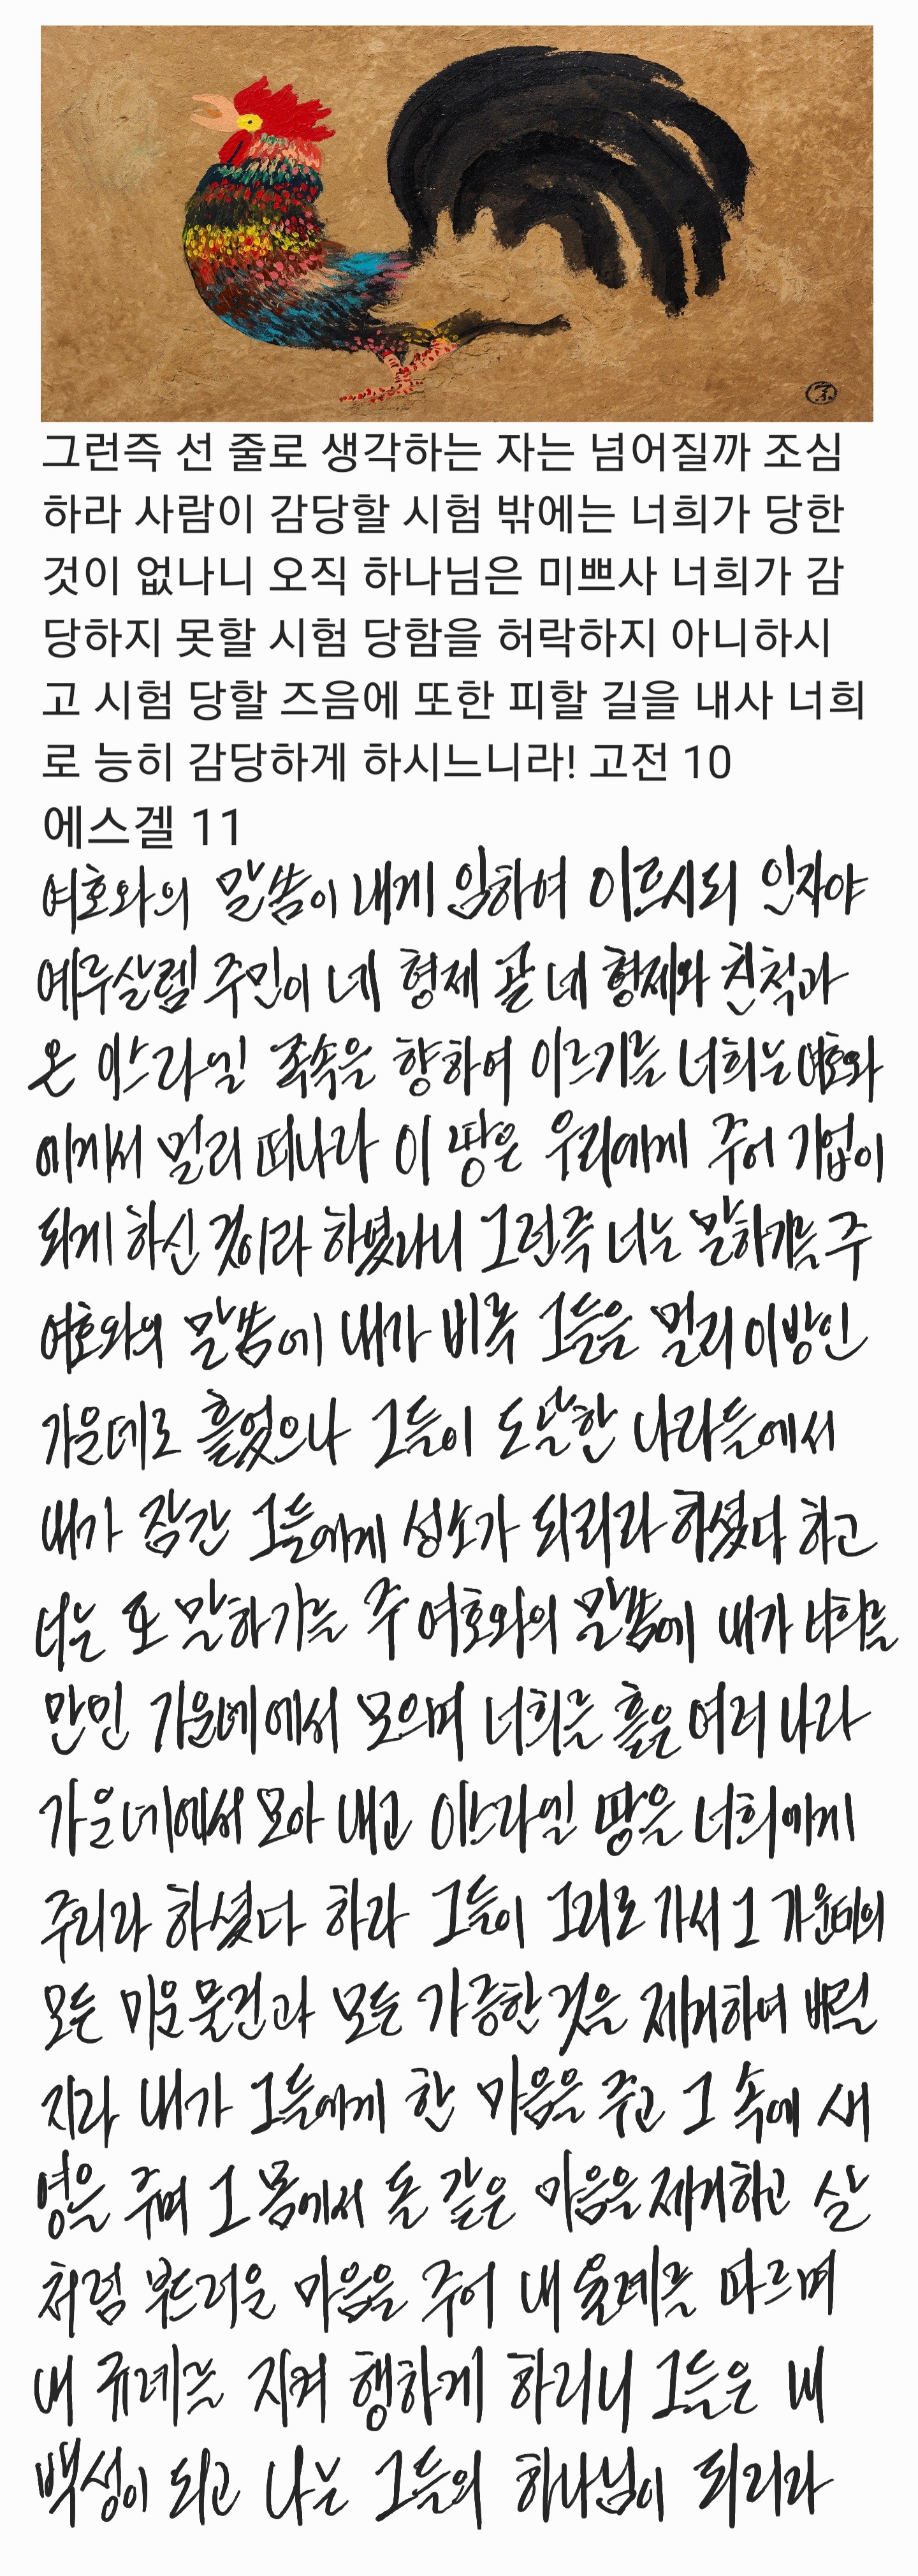 그런즉 선 줄로 생각하는 자는 넘어질까 조심
하라 사람이 감당할 시험 밖에는 너희가 당한
것이 없나니 오직 하나님은 미쁘사 너희가 감
당하지 못할 시험 당함을 허락하지 아니하시
고 시험 당할 즈음에 또한 피할 길을 내사 너희
로 능히 감당하게 하시느니라! 고전 10
에스겔 11
여호와의 말씀이 내게 임하여 이르시되 인자야
예루살렘 주민이 네 형제 곧 네 형제와 친척과
온 이스라엘 족속을 향하여 이르기를 너희는 여호와
에게서 멀리 떠나라 이 땅은 우리에게 주어 기업이
되게 하신 것이라 하였나니 그런즉 너는 말하기를 주
여호와의 말씀에 내가 비록 그들을 멀리 이방인
가운데로 흩었으나 그들이 도달한 나라들에서
내가 잠간 그들에게 성소가 되리라 하셨다 하고
너는 또 말하기를 주 여호와의 말씀에 내가 너희를
만민 가운데에서 모으며 너희를 흩은 여러 나라
가운데에서 모아 내고 이스라엘 땅을 너희에게
주리라 하셨다 하라 그들이 그리로 가서 그 가운데의
모든 미운 물건과 모든 가증한 것을 제거하여 버릴
지라 내가 그들에게 한 마음을 주고 그 속에 새
영을 주며 그 몸에서 돌 같은 마음을 제거하고 살
처럼 부드러운 마음을 주어 내 율례를 따르며
내 규례를 지켜 행하게 하리니 그들은 내
백성이 되고 나는 그들의 하나님이 되리라